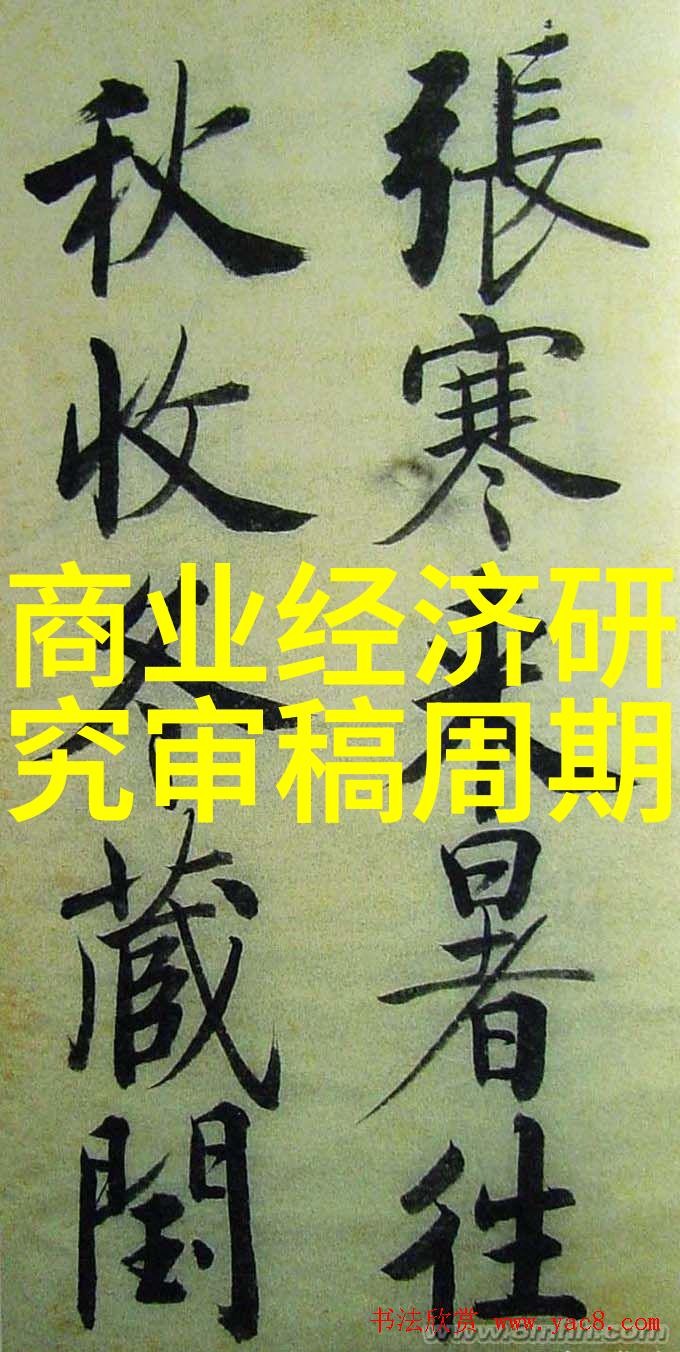 張寒来暑往
秋收冬藏閏
商业经济研
究审稿周期
书法欣赏 www.yac8.com